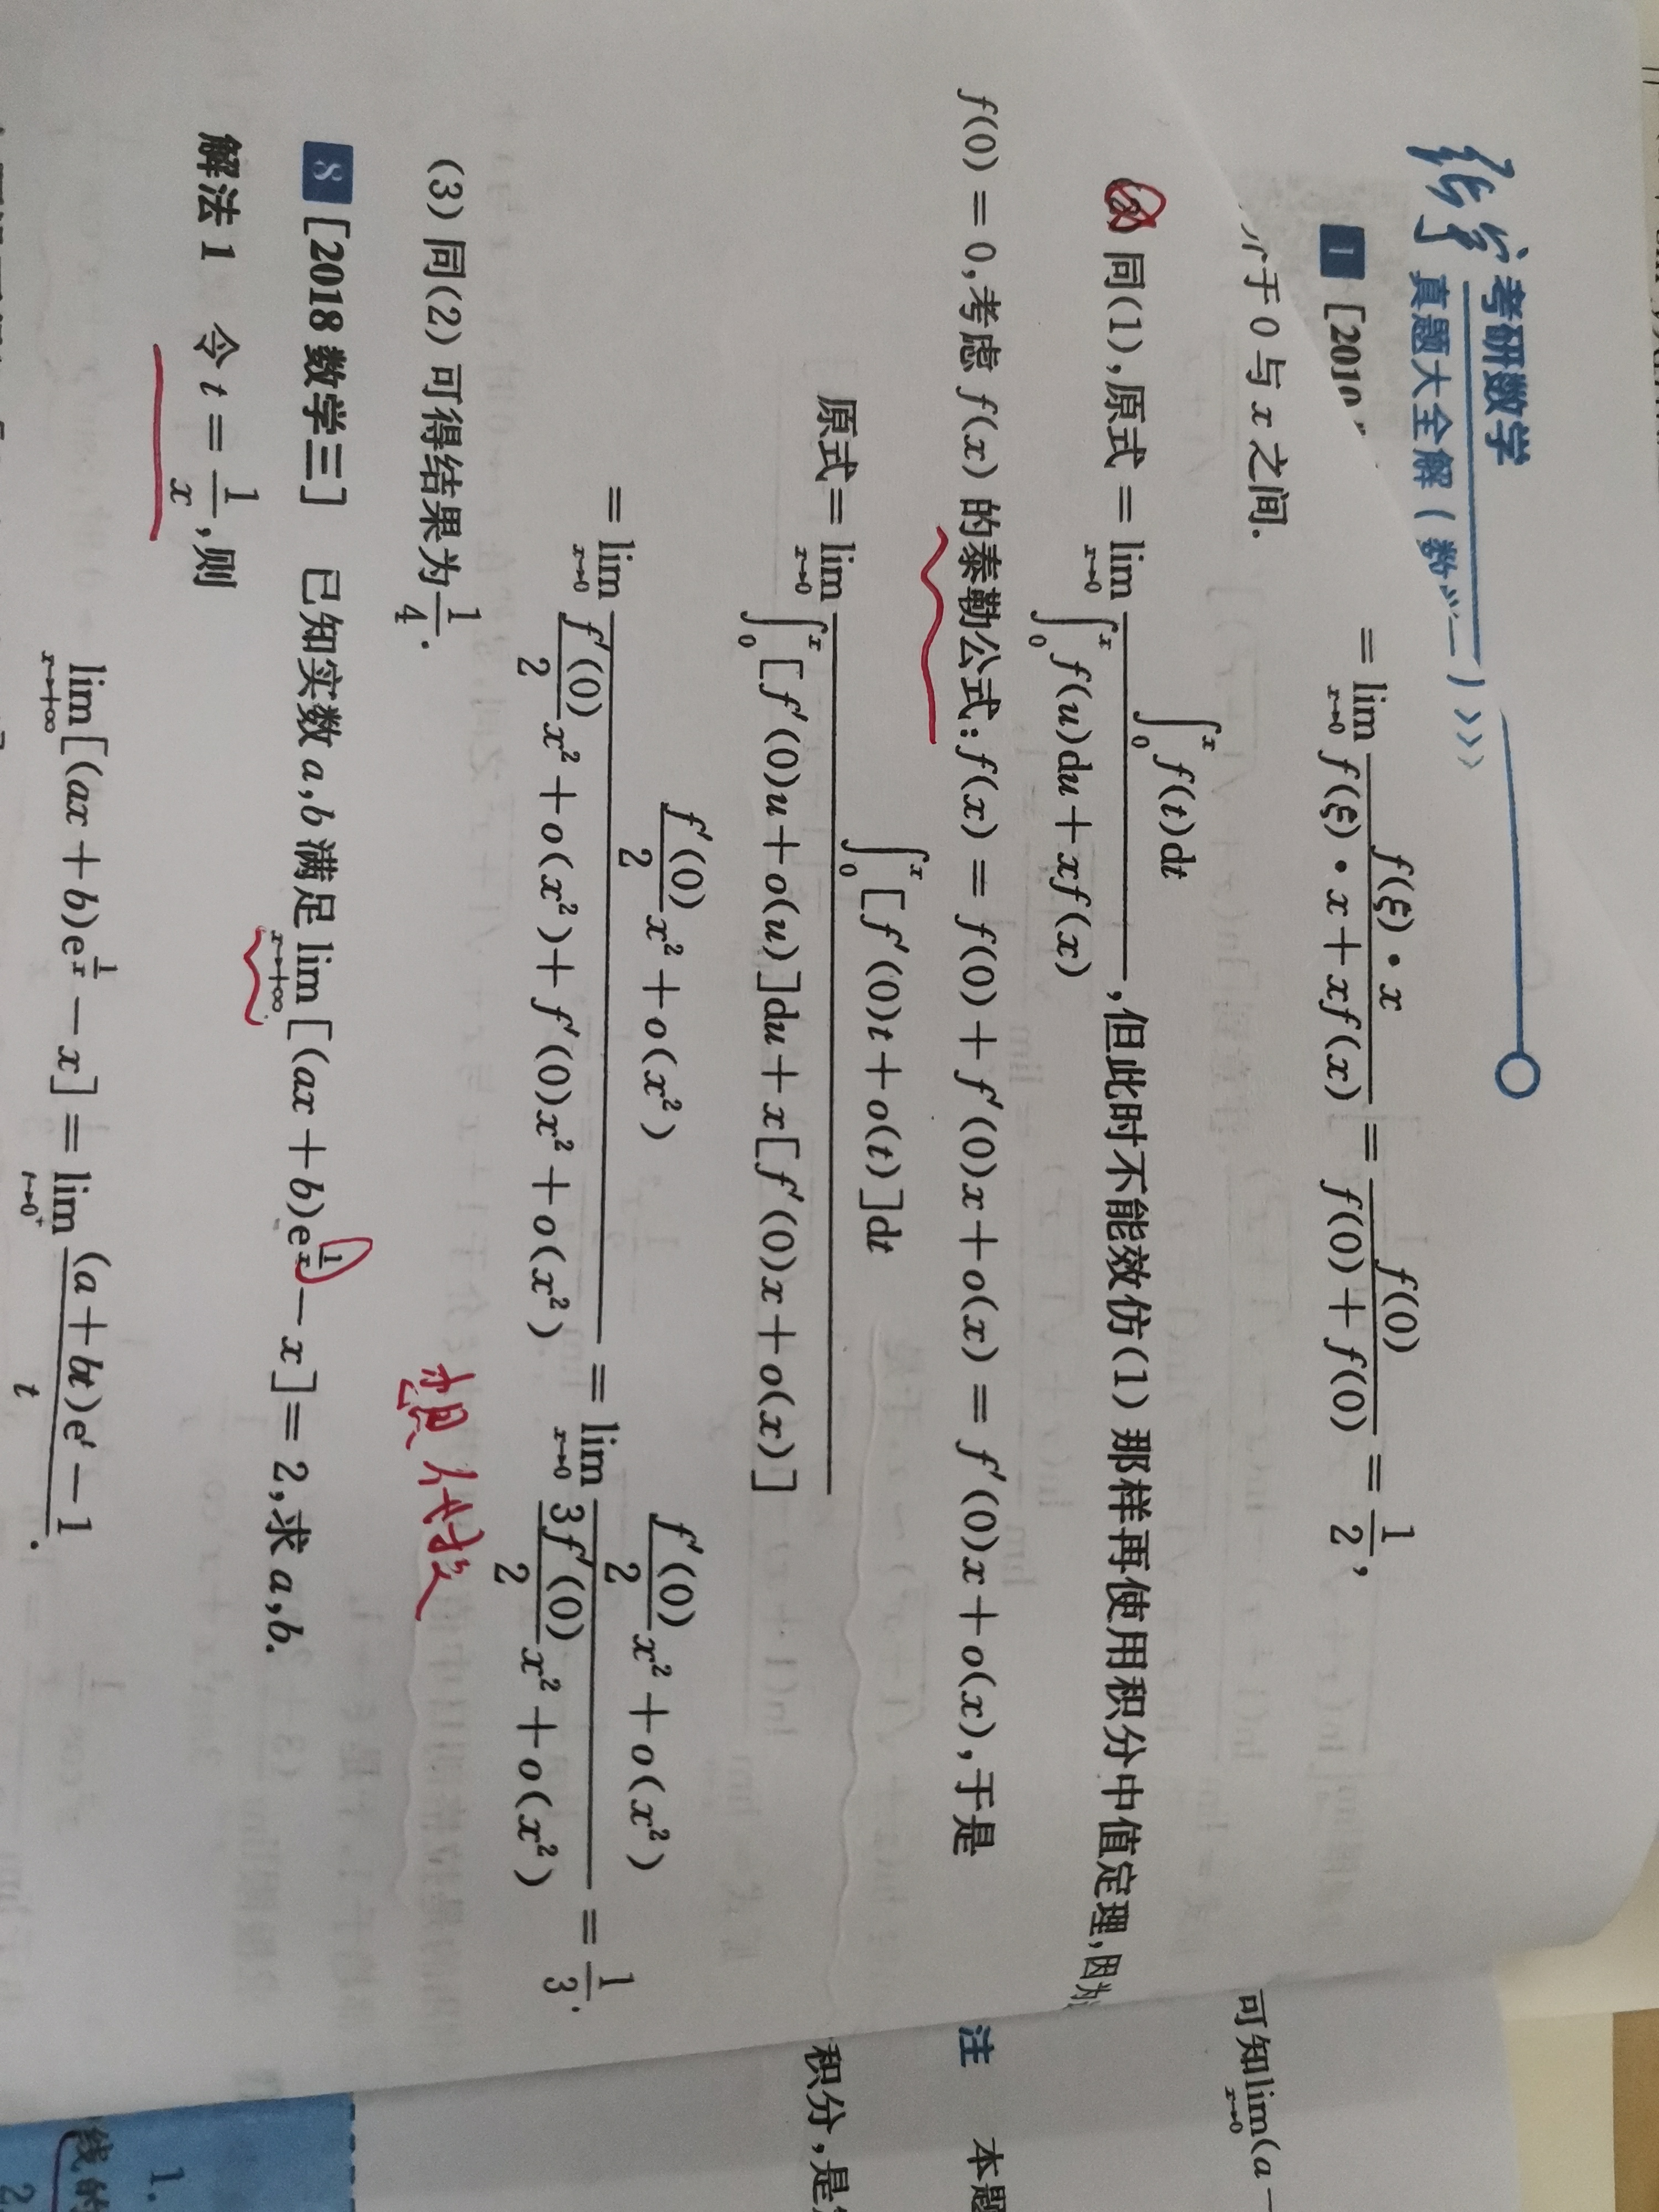 考研数学
真题大全解（数学二）>>>
1 [2010
= lim_{x→0} \frac{f(ξ)·x}{f(ξ)·x+xf(x)} = \frac{f(0)}{f(0)+f(0)} = \frac{1}{2},
介于 0 与 x 之间.
(2) 同(1),原式 = lim_{x→0} \frac{∫_0^x f(t)dt}{∫_0^x f(u)du+xf(x)},但此时不能效仿(1)那样再使用积分中值定理,因为
f(0) = 0,考虑 f(x) 的泰勒公式:f(x) = f(0) + f′(0)x + o(x) = f′(0)x + o(x),于是
原式 = lim_{x→0} \frac{∫_0^x [f′(0)t+o(t)]dt}{∫_0^x [f′(0)u+o(u)]du+x[f′(0)x+o(x)]}
= lim_{x→0} \frac{\frac{f′(0)}{2}x²+o(x²)}{\frac{f′(0)}{2}x²+o(x²)+f′(0)x²+o(x²)} = lim_{x→0} \frac{\frac{f′(0)}{2}x²+o(x²)}{\frac{3f′(0)}{2}x²+o(x²)} = \frac{1}{3}.
(3) 同(2) 可得结果为\frac{1}{4}.
8 [2018 数学三] 已知实数 a,b 满足 lim_{x→+∞}[(ax+b)e^{\frac{1}{x}}-x]=2,求 a,b.
解法 1 令 t = \frac{1}{x},则
lim_{x→+∞}[(ax+b)e^{\frac{1}{x}}-x] = lim_{t→0⁺} \frac{(a+bt)e^t-1}{t}.
可知lim_{x→0}(a-
注 本题
积分,是
1.
线的
2